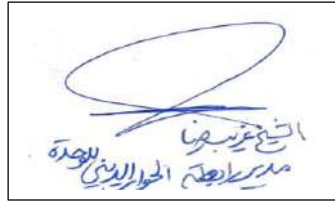 الشيخ غريب رضا
مدير رابطة الحوار الديني للوحدة